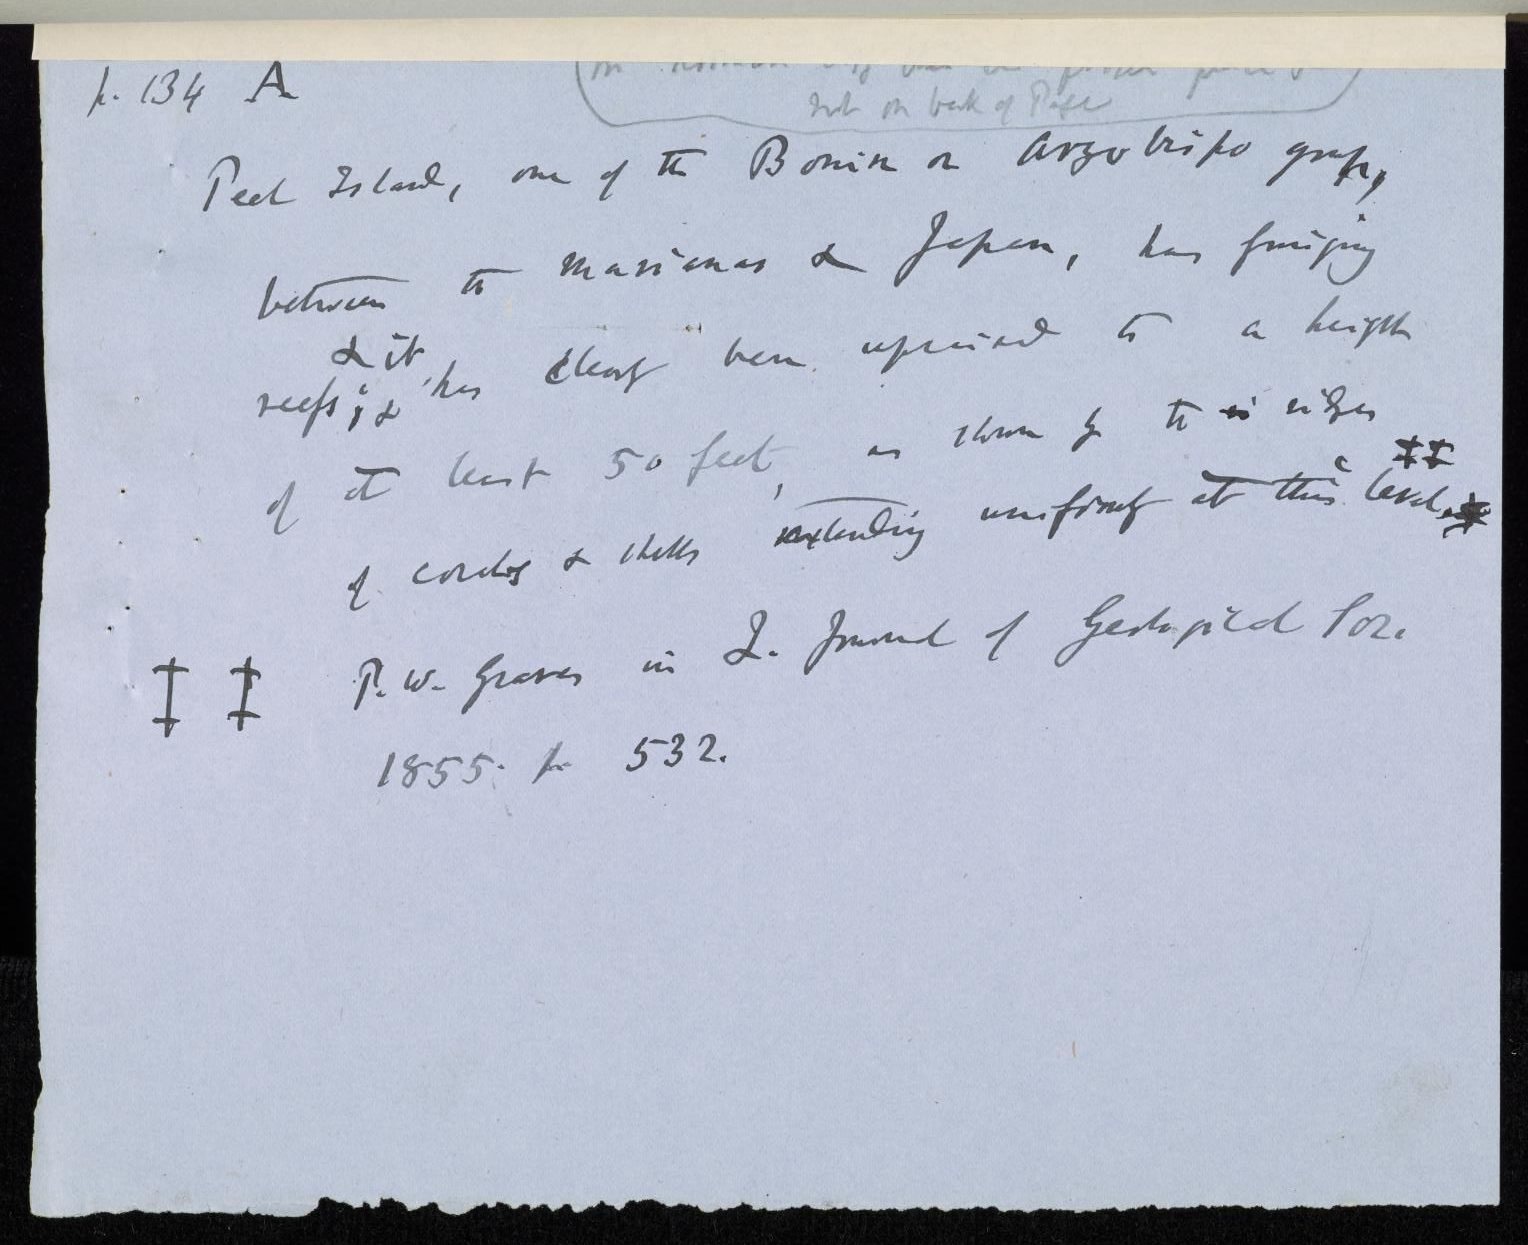 p. 134 A
not on back of Page
Peel Island, one of the Bonin or Arzobispo group,
between the Marianas & Japan, has fringing
& it
reefs; & has clearly been upraised to a height
of at least 50 feet, as shown by the ridges
‡‡
of corals & shells extending uniformly at this level.
‡ ‡ P. W. Graves in Q. Journal of Geological Soc.
1855. p. 532.